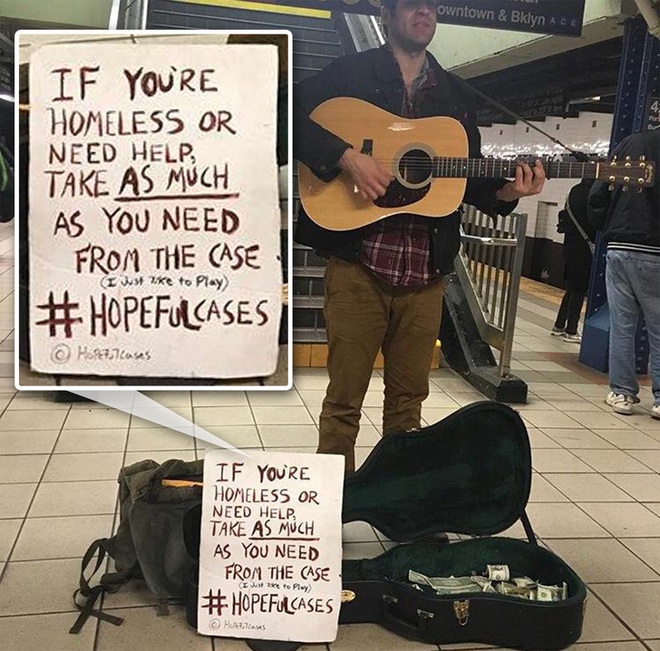 owntown & Bklyn A C E
IF YOU'RE
HOMELESS OR
NEED HELP,
TAKE AS MUCH
AS YOU NEED
FROM THE CASE
(I Just like to Play)
#HOPEFULCASES
© Hopefulcases
IF YOU'RE
HOMELESS OR
NEED HELP,
TAKE AS MUCH
AS YOU NEED
FROM THE CASE
(I Just like to Play)
#HOPEFULCASES
© Hopefulcases